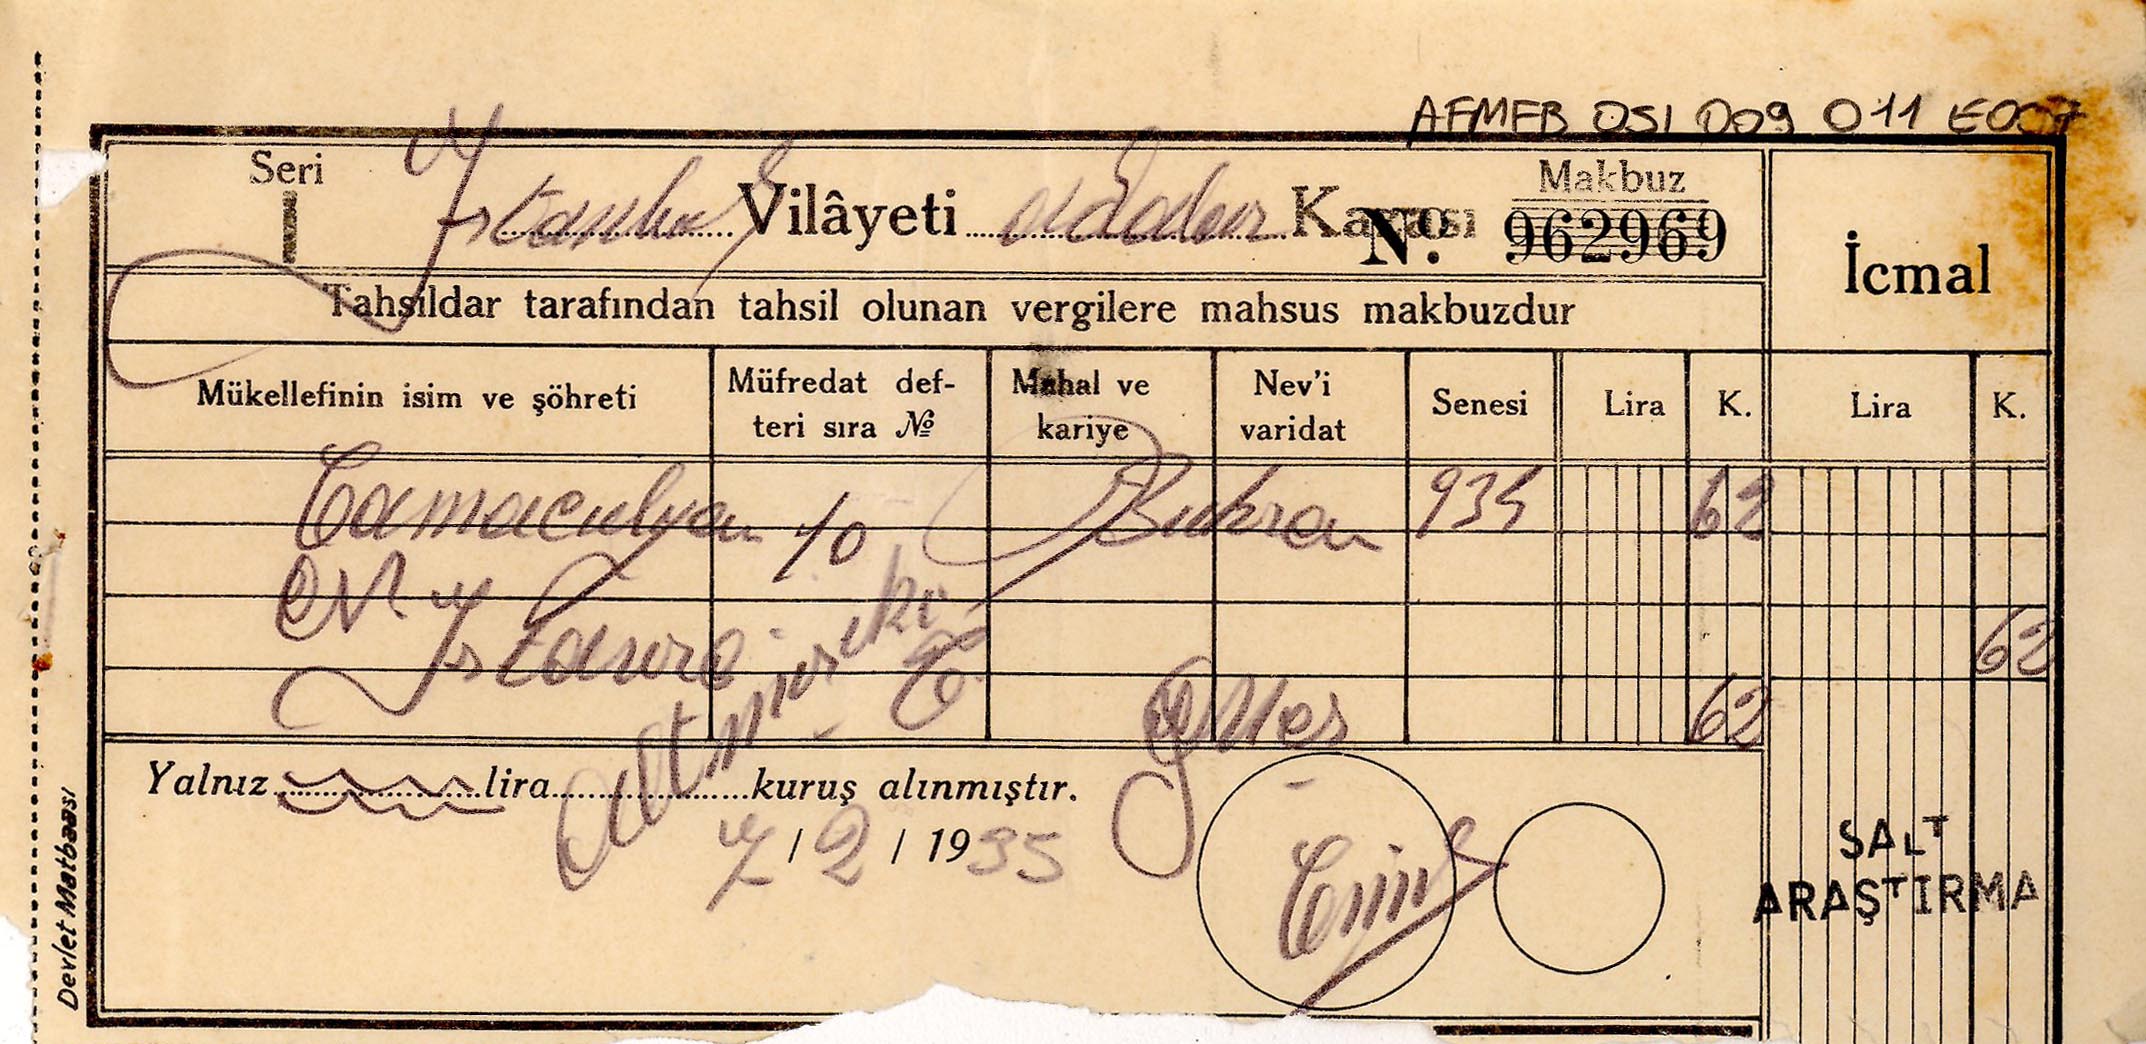 AFMEB OSI 009 011 E007
Seri I
İstanbul Vilâyeti Kazası
Makbuz
No. 962969
İcmal
Tahsildar tarafından tahsil olunan vergilere mahsus makbuzdur
Mükellefinin isim ve şöhreti Müfredat defteri sıra No Mahal ve kariye Nev'i varidat Senesi Lira K. Lira K.
10 Buhran 934 62
62
62
Yalnız lira Altmış iki kuruş alınmıştır.
7 / 2 / 1935
SALT
ARAŞTIRMA
Devlet Matbaası